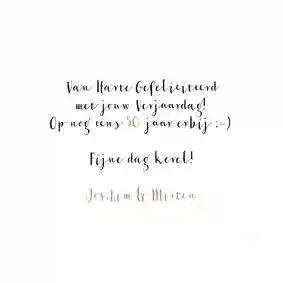 Van Harte Gefeliciteerd
met jouw Verjaardag!
Op nog eens 50 jaar erbij ;-)
Fijne dag kerel!
&